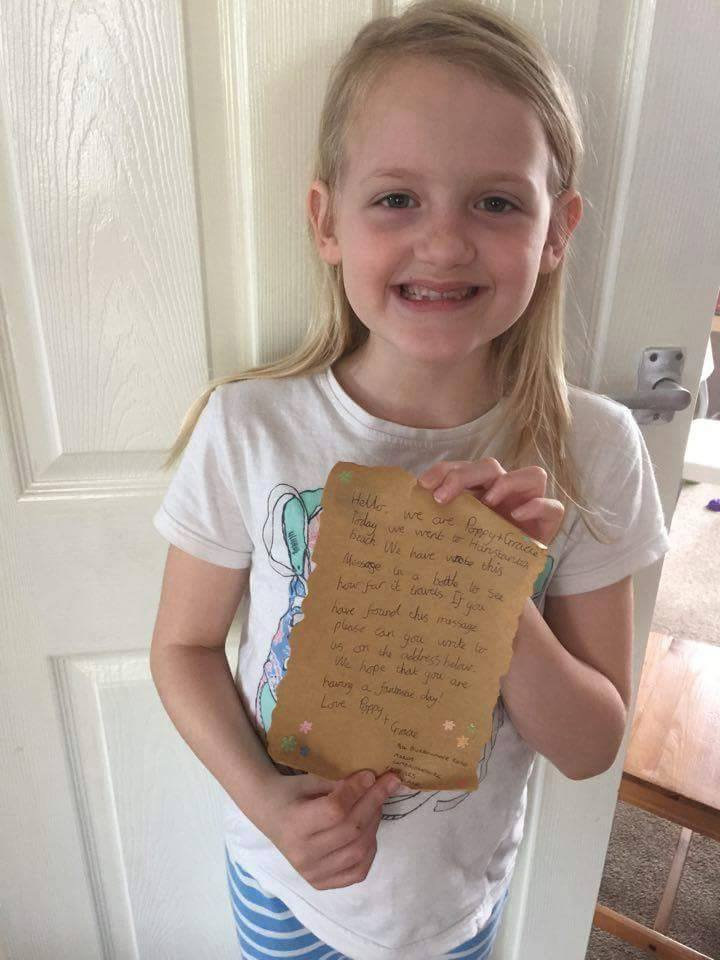 Hello, we are Poppy + Gracie
Today we went to Hunstanton
beach We have wrote this
Message in a bottle to see
how far it travels. If you
have found this message
please can you write to
us on the address below.
We hope that you are
having a fantastic day!
Love Poppy
+ Gracie